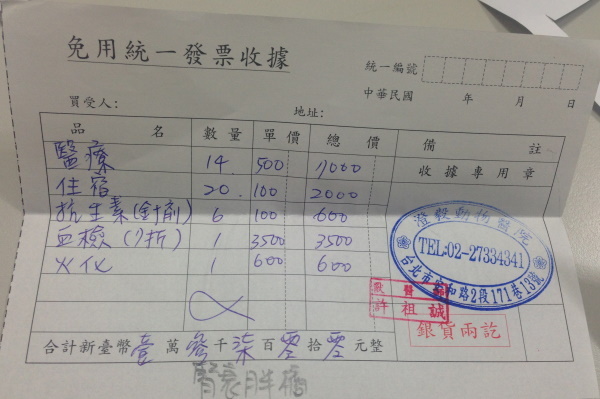 免用統一發票收據
統一編號
中華民國 年 月 日
買受人: 地址:
品名 數量 單價 總價 備註
收據專用章
醫療 14 500 7000
住宿 20 100 2000
抗生素(針劑) 6 100 600
血檢(7折) 1 3500 3500
火化 1 600 600
動物醫院
TEL:02-27334341
台北市安和路2段171巷13號
獸醫師
許祖誠
銀貨兩訖
合計新臺幣壹萬參千柒百零拾零元整
腎衰胖橘